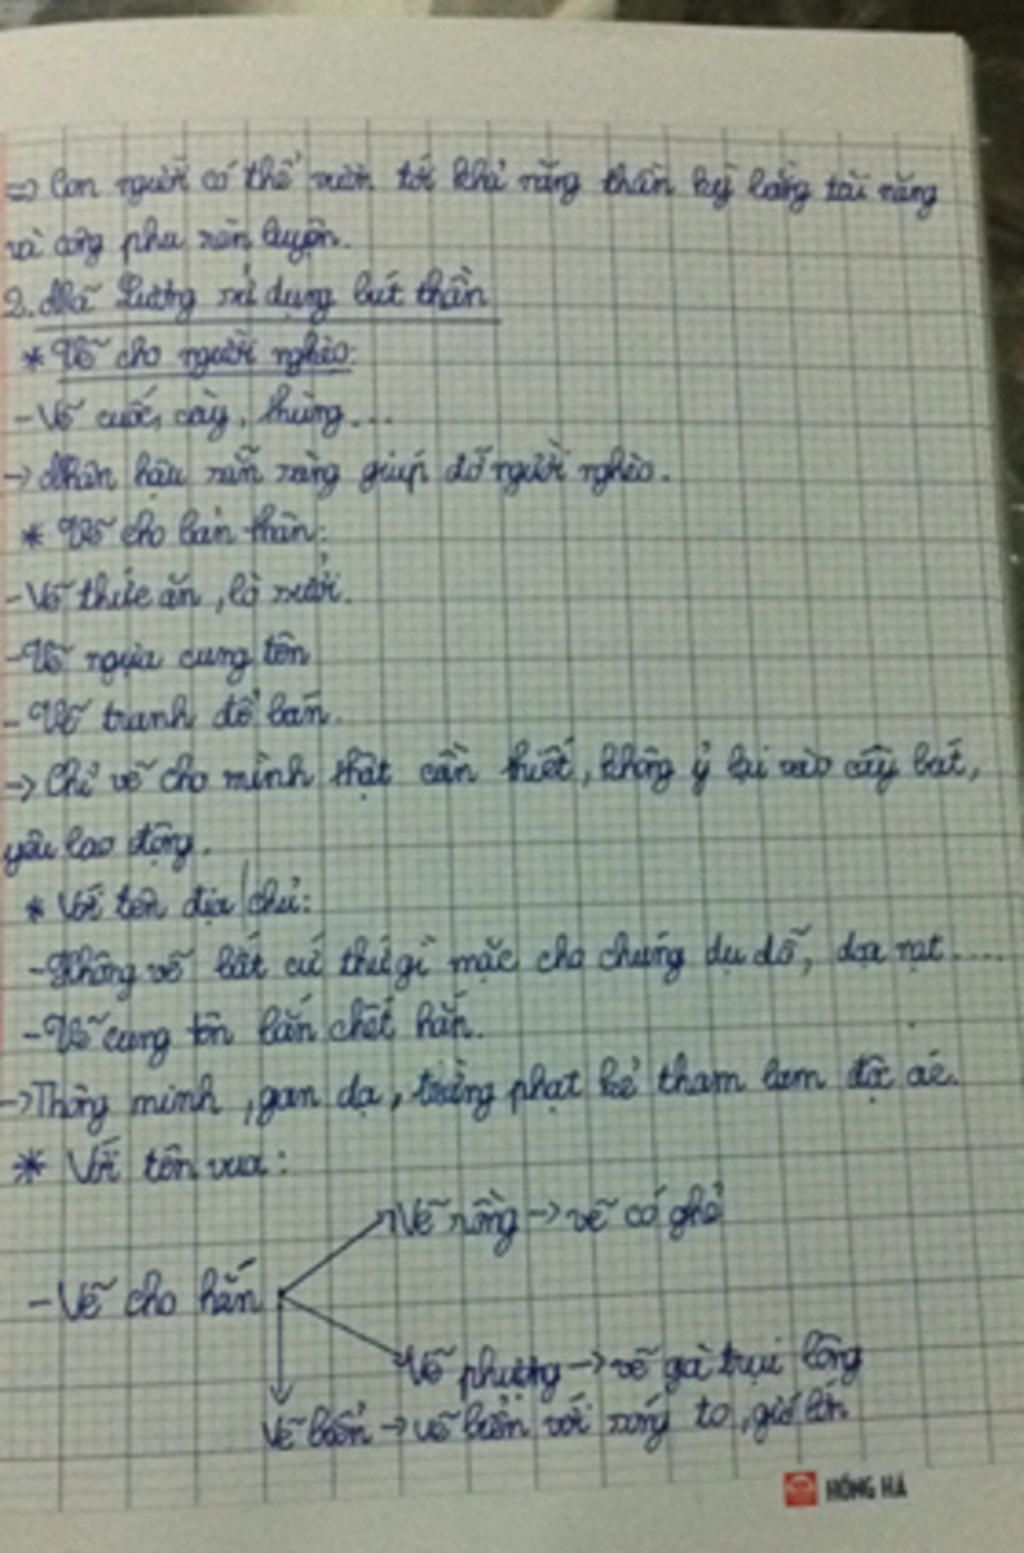 => Con người có thể vươn tới khả năng thần kỳ bằng tài năng
và công phu rèn luyện.
2. Mã Lương sử dụng bút thần
* Vẽ cho người nghèo:
- Vẽ cuốc, cày, thùng...
-> Nhân hậu sẵn sàng giúp đỡ người nghèo.
* Vẽ cho bản thân:
- Vẽ thức ăn, lò sưởi.
- Vẽ ngựa cung tên
- Vẽ tranh để bán.
-> Chỉ vẽ cho mình thật cần thiết, không ỷ lại vào cây bút,
yêu lao động.
* Với tên địa chủ:
- Không vẽ bất cứ thứ gì mặc cho chúng dụ dỗ, dọa nạt....
- Vẽ cung tên bắn chết hắn.
-> Thông minh, gan dạ, trừng phạt kẻ tham lam độc ác.
* Với tên vua:
Vẽ rồng -> vẽ cóc ghẻ
- Vẽ cho hắn
Vẽ phượng -> vẽ gà trụi lông
Vẽ biển -> vẽ biển với sóng to, gió lớn
HỒNG HÀ